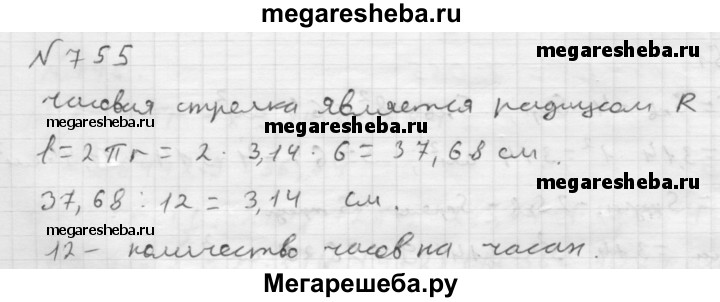 megaresheba.ru
N 755
megaresheba.ru
часовая стрелка является радиусом R
megaresheba.ru
megaresheba.ru
l = 2πr = 2 · 3,14 · 6 = 37,68 см.
37,68 : 12 = 3,14 см.
megaresheba.ru
megaresheba.ru
12 - количество часов на часах.
Мегарешеба.ру